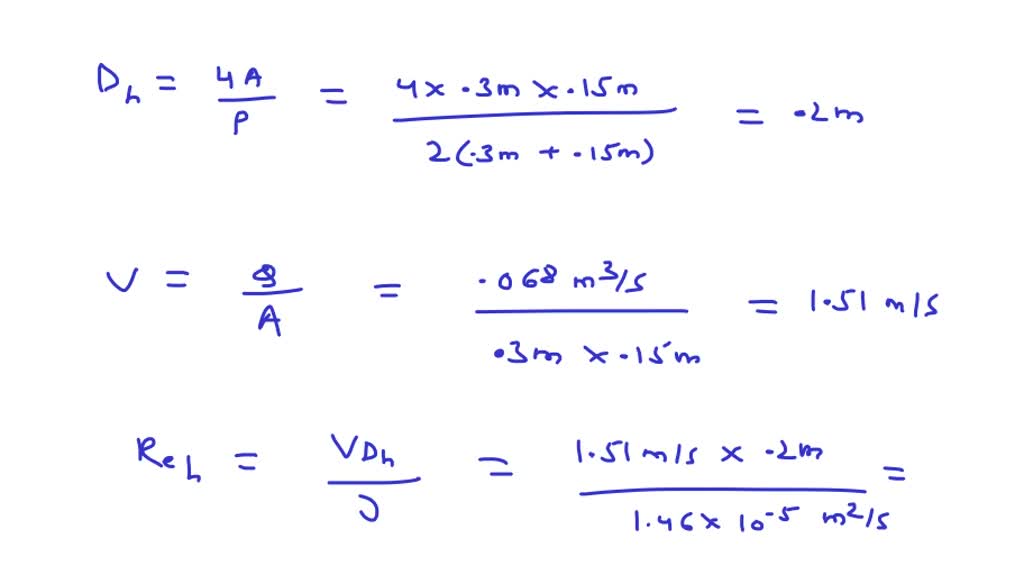 D_h = 4A/P = (4 x .3m x .15m)/(2(.3m + .15m)) = .2m
V = Q/A = (.068 m^3/s)/(.3m x .15m) = 1.51 m/s
Re_h = VD_h/ν = (1.51 m/s x .2m)/(1.46 x 10^-5 m^2/s) =